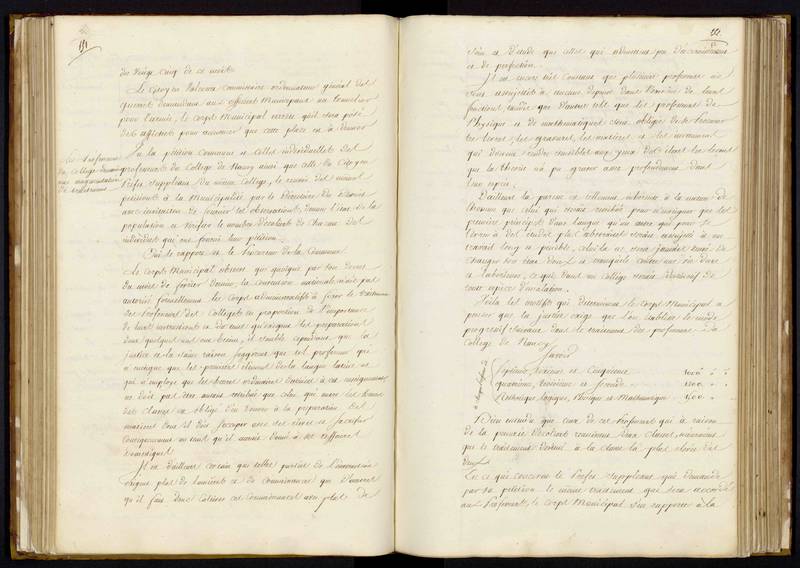 du vingt cinq de ce mois
Le Citoyen commissaire ordonnateur général des
guerres demandant aux officiers Municipaux un Conseiller
pour l'armée, le corps Municipal arrête qu'il sera posé
des affiches pour annoncer que cette place est à donner
Les Professeurs
du College demandent
une augmentation
de traitement
Vu la pétition commune et celles individuelles des
professeurs du College de Nancy ainsi que celle du Citoyen
Prefet Suppléant du même College, le renvoi des mêmes
pétitions à la Municipalité par le Directoire du District
avec invitation de fournir ses observations, donner l'état de la
population et vérifier le nombre d'écoliers de chacun des
individus qui ont fourni leur pétition.
Ouï le rapport et le Procureur de la Commune
Le Corps Municipal observe que quoique par son décret
du mois de février dernier, la convention nationale n'ait pas
autorisé formellement les Corps administratifs à fixer le traitement
des Professeurs des Colleges en proportion de l'importance
de leurs instructions et du tems qu'exigent les préparations
dont quelques unes ont besoin, il semble cependant que la
justice et la saine raison suggèrent que tel professeur qui
n'enseigne que les premiers élémens de la langue latine et
qui n'emploie que les heures ordinaires destinées à cet enseignement
ne doit pas être autant rétribué que celui qui outre les heures
des classes est obligé d'en donner à la préparation des
matieres dont il doit s'occuper avec ses élèves et sacrifier
conséquemment un tems qu'il aurait donné à des affaires
domestiques
Il est d'ailleurs certain que telle partie de l'instruction
exigeant plus de lumières et de connaissances que d'autres
qu'il faut donc cultiver ces connaissances avec plus de
soin et d'étude que celles qui
et de perfection.
Il est encore très constant que plusieurs professeurs ne
sont assujettis à aucune dépense dans l'exercice de leurs
fonctions, tandis que d'autres tels que les professeurs de
Physique et de mathématiques sont obligés de se procurer
des livres, des gravures, des matières et des instrumens
qui doivent rendre sensibles aux yeux des élèves les leçons
que la théorie n'a pu graver assez profondement dans
leur esprit.
D'ailleurs la paresse est tellement inhérente à la nature de
l'homme que celui qui serait rétribué pour n'enseigner que les
premiers principes d'une langue qu'un autre qui pour se
livrer à des études plus abstraites serait assujetti à un
travail long et pénible, celui la ne sera jamais tenté de
changer son état doux et tranquille contre une vie dure
et laborieuse, ce qui dans un College serait destructif de
toute espèce d'émulation.
Voilà les motifs qui déterminent le corps Municipal à
penser que la justice exige que l'on établisse le mode
progressif suivant dans le traitement des professeurs du
College de Nancy.
Savoir
à chaque professeur de
Septième, Sixième et Cinquieme 1000
quatrieme, troisieme et Seconde 1200
Rhétorique, logique, Phisique et Mathématique 1500
Bien entendu que ceux de ces Professeurs qui à raison
de la penurie d'écoliers tiendront deux classes, n'auront
que le traitement destiné à la classe la plus élevée des
deux.
En ce qui concerne le Prefet Suppléant qui demande
par sa pétition le même traitement que sera accordé
aux Professeurs, le corps Municipal s'en rapporte à la